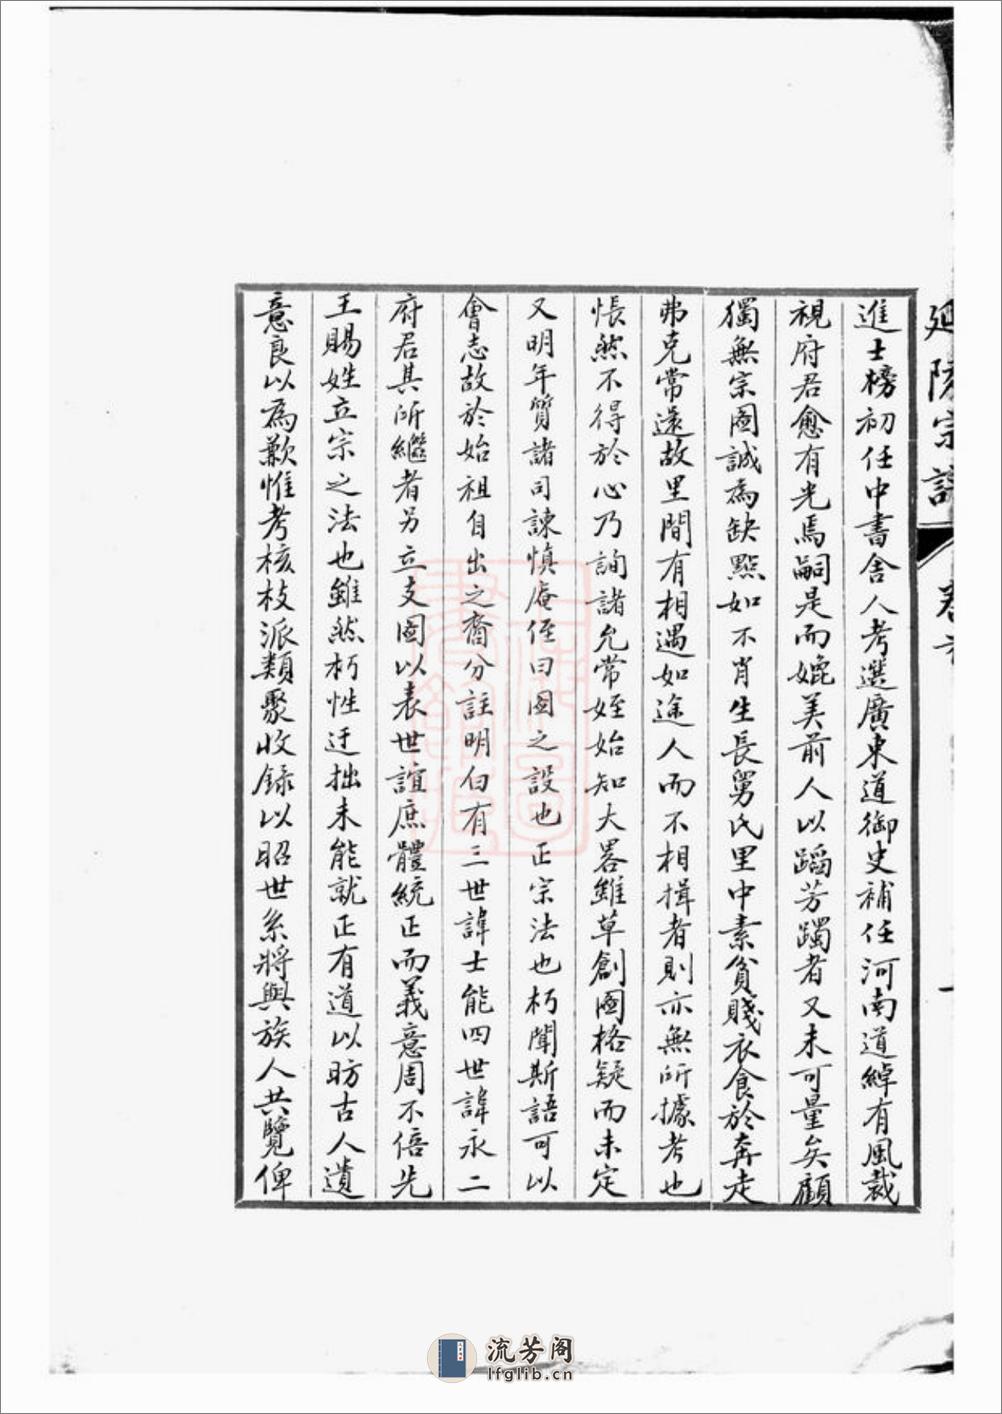 延陵宗譜 卷首 一
進士榜初任中書舍人考選廣東道御史補任河南道綽有風裁
視府君愈有光焉嗣是而媲美前人以蹈芳躅者又未可量矣顧
獨無宗圖誠為缺點如不肖生長舅氏里中素貧賤衣食於奔走
弗克常還故里間有相遇如途人而不相揖者則亦無所據考也
悵然不得於心乃詢諸允常姪始知大畧雖草創圖格疑而未定
又明年質諸司諫慎庵侄曰圖之設也正宗法也朽聞斯語可以
會志故於始祖自出之裔分註明白有三世諱士能四世諱永二
府君其所繼者另立支圖以表世誼庶體統正而義意周不倍先
王賜姓立宗之法也雖然朽性迂拙未能就正有道以昉古人遺
意良以為歉惟考核枝派類聚收錄以昭世系將與族人共覽俾
流芳阁
lfglib.cn